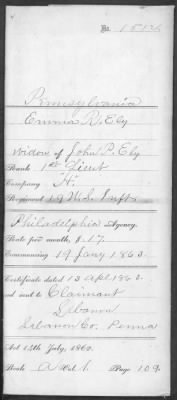 No. 1814
Pennsylvania
Emma R. Ely
Widow of John P. Ely
Rank 1st Lieut
Company H.
Regiment
Philadelphia Agency.
Rate per month, $17
Commencing 19 Jany 1863
Certificate dated 13 Apl 1863
and sent to Claimant
Lebanon
Lebanon Co. Penna
Act 14th July, 1862.
Book A Vol. 1. Page 109